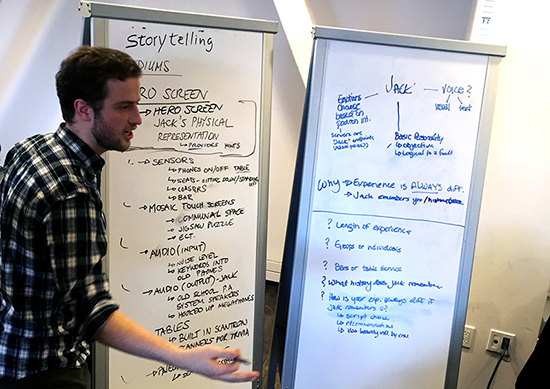 Storytelling
HERO SCREEN
→ HERO SCREEN
JACK'S PHYSICAL
REPRESENTATION
↳ PROVIDES
→ SENSORS
↳ PHONES ON/OFF TABLE
↳ SEATS - SITTING DOWN/
↳ COASTERS
↳ BAR
→ MOSAIC TOUCH SCREENS
↳ COMMUNAL SPACE
↳ JIGSAW PUZZLE
↳ ECT.
→ AUDIO (INPUT)
↳ NOISE LEVEL
↳ KEYWORDS INTO
OLD PHONES
→ AUDIO (OUTPUT) - JACK
↳ OLD SCHOOL P.A
SYSTEM SPEAKERS
↳ HOOKED UP MEGAPHONES
TABLES
↳ BUILT IN SCANTRON
SCANNERS FOR TRIVIA
JACK — VOICE?
visual text
Emotions
Change
based on
Basic Personality
↳ objective
↳ Logical to a fault
Why → Experience is ALWAYS diff.
↳ Jack remembers you/
? Length of experience
? Groups or individuals
? Bar or table service
? What history does Jack remember
? How is your exp. always diff. if
Jack remembers u?
↳ script choice
↳ recommendations